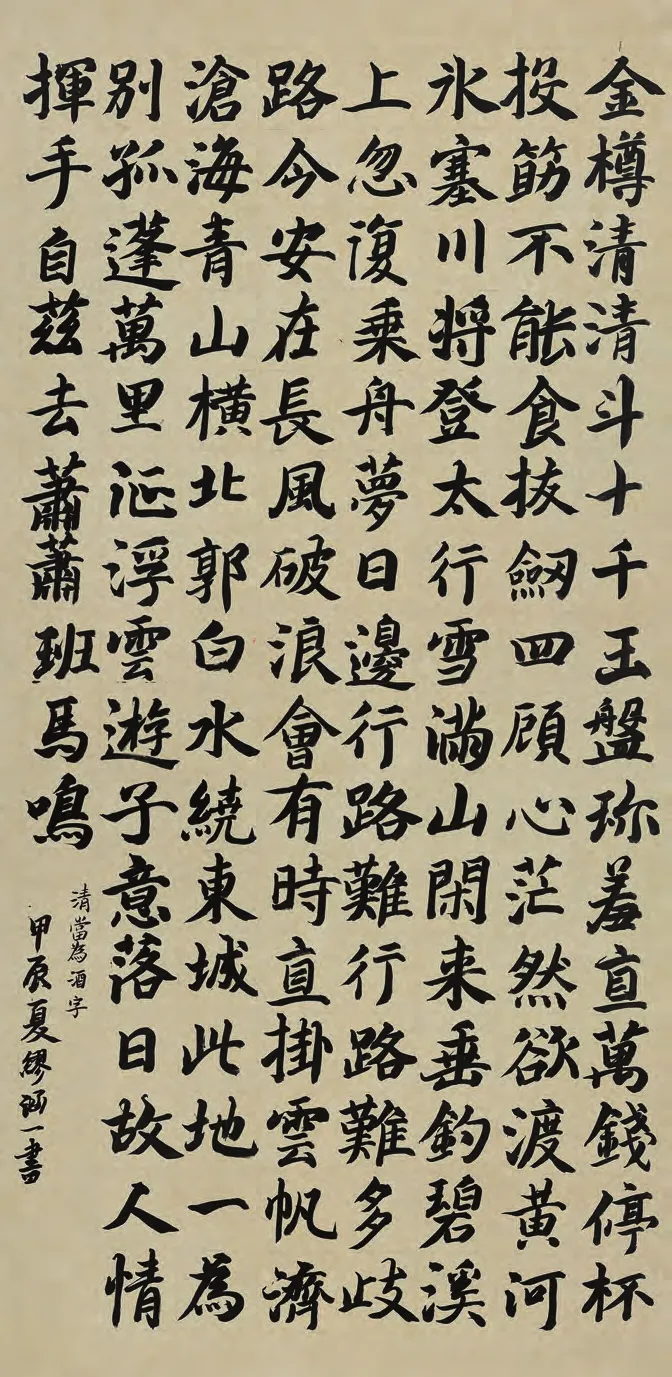 金樽清清斗十千玉盤珎羞直萬錢停杯
投筯不能食拔劔四顧心茫然欲渡黃河
氷塞川將登太行雪滿山閑来垂釣碧溪
上忽復乗舟夢日邊行路難行路難多歧
路今安在長風破浪會有時直掛雲帆濟
滄海青山横北郭白水繞東城此地一為
別孤蓬萬里征浮雲遊子意落日故人情
揮手自茲去蕭蕭班馬鳴
清當為酒字
甲辰夏繆一書